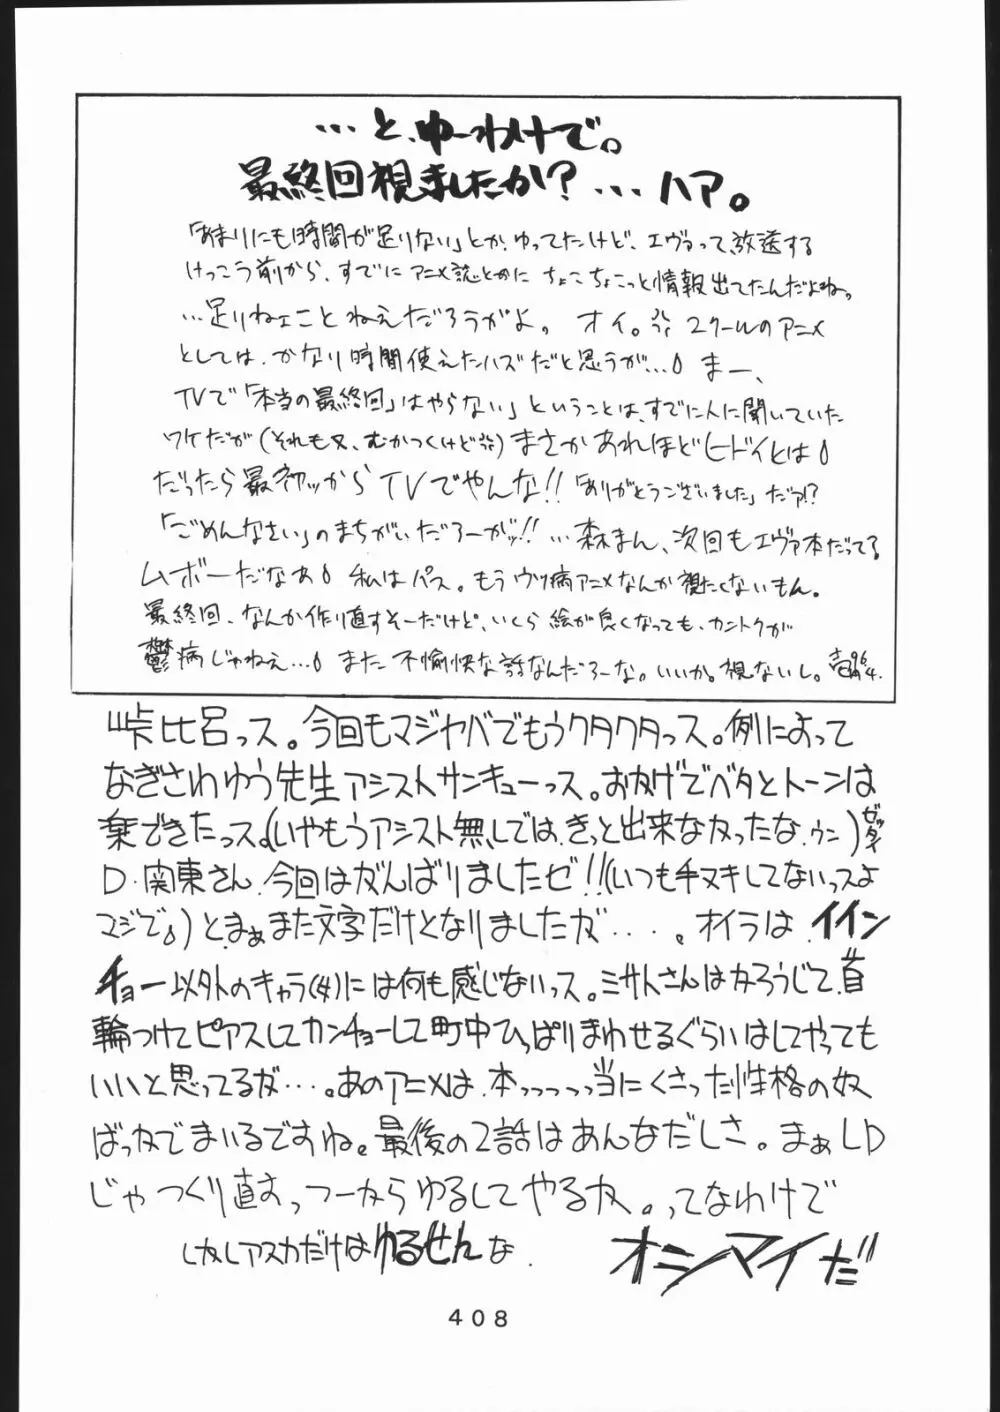 …と、ゆーわけで。
最終回視ましたか?…ハア。
「あまりにも時間が足りない」とか、ゆってたけど、エヴァって、放送する
けっこう前から、すでにアニメ誌とかに ちょこちょこっと情報出てたんだよね。
…足りねェことねえだろうがよ。オイ。2クールのアニメ
としては、かなり時間使えたハズだと思うが…まー、
TVで「本当の最終回」はやらない」ということは、すでに人に聞いていた
ワケだが(それも又、むかつくけど)まさかあれほどヒドイとは
だったら最初ッからTVでやんな!!「ありがとうございました」だァ!?
「ごめんなさい」のまちがいだろーがッ!!…森まん、次回もエヴァ本だってさ
ムボーだなぁ 私はパス。もうウツ病アニメなんか視たくないもん。
最終回、なんか作り直すそーだけど、いくら絵が良くなっても、カントクが
鬱病じゃねえ…また不愉快な話なんだろーな。いいか。視ないし。 96.4.
峠比呂っス。今回もマジヤバでもうクタクタっス。例によって
なぎさわゆう先生アシストサンキューっス。おかげでベタとトーンは
楽できたっス。(いやもうアシスト無しでは、きっと出来なかったな、ウン)ゼッタイ
D・関東さん、今回はがんばりましたゼ!!(いつも手ヌキしてないっスよ
マジで)とまぁまた文字だけとなりましたが・・・・。オイラは、イイン
チョー以外のキャラ(女)には何も感じないっス。ミサトさんはかろうじて、首
輪つけてピアスしてカンチョーして町中ひっぱりまわせるぐらいはしてやっても
いいと思ってるが・・・。あのアニメは、本っっっっ当にくさった性格の奴
ばっかでまいるですね。最後の2話はあんなだしさ。まぁLD
じゃつくり直すっつーからゆるしてやるか。ってなわけで
しかしアスカだけはゆるせんな オシマイだ
408